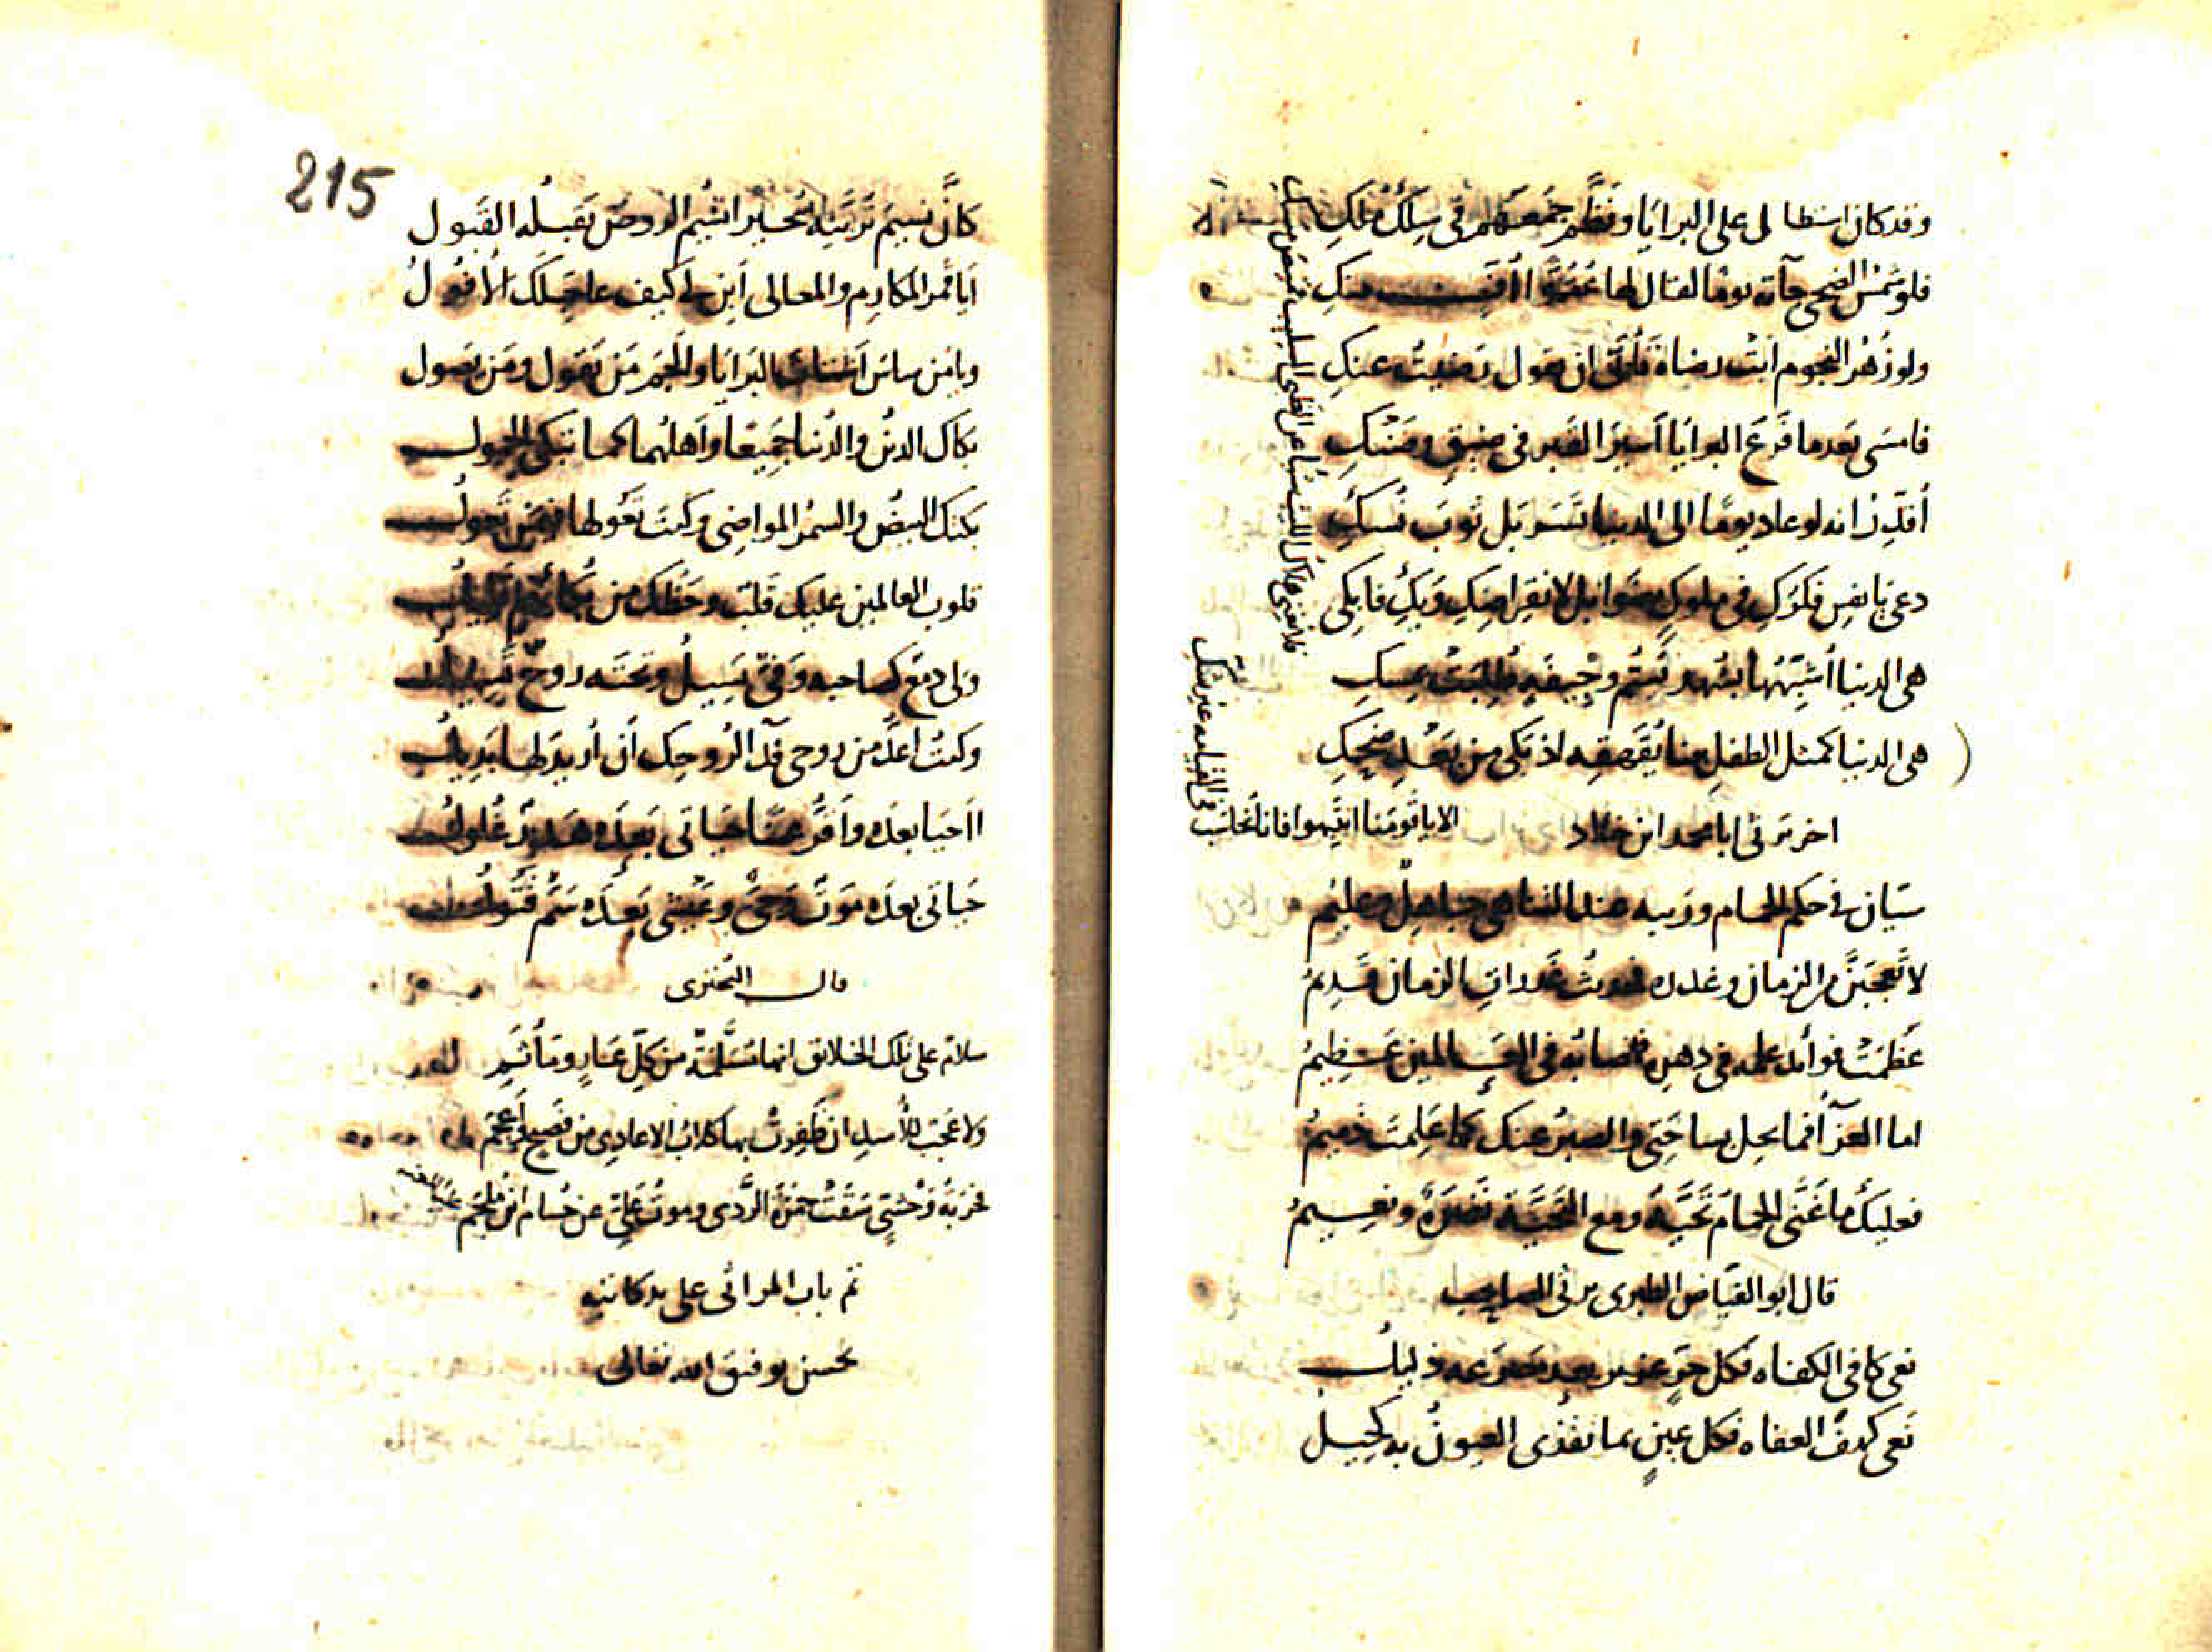 وقد كان استطال على البرايا ونظم جمعهم في سلك ملك
فلو شمس الضحى جاءته يوما لقال لها عتوا أف منك
ولو زهر النجوم أبت رضاه تأبى ان يقول رضيت عنك
فامسى بعد ما قرع البرايا أسير القبر في ضيق وضنك
أقدر انه لو عاد يوما الى الدنيا تسربل ثوب نسك
دعي يا نفس فكرك في ملوك مضوا بل لانقراضك ويك فابكي
هي الدنيا أشبهها بشهد يسم وجيفة طليت بمسك
هي الدنيا كمثل الطفل بينا يقهقه اذ بكى من بعد ضحك
الا يا قومنا انتبهوا فانا نحاسب
في القيامة غير شك
اخر يرثي ابا محمد ابن خلاد
سيان في حكم الحمام وريبه عند التناهي جاهل وعليم
لا تعجبن من الزمان وغدره فحديث غدرات الزمان قديم
عظمت فوائد علمه في دهره فمصابه في العالمين عظيم
اما العزاء فما يحل بساحتي والصبر عنك كما علمت ذميم
فعليك ما غنى الحمام تحية ومع التحية نضرة ونعيم
قال ابو الفياض الطبري يرثي الصاحب
نعي كافي الكفاه فكل حر عزيز بعد مصرعه ذليل
نعي كهف العفاه فكل عين بما تقذى العيون به كحيل
215
كأن نسيم تربته سحيرا نسيم الروض تقبله القبول
أيا قمر المكارم والمعالي أبن لي كيف عاجلك الأفول
ويا من ساس أشتات البرايا والجم من يقول ومن يصول
بكاك الدين والدنيا جميعا واهلهما كما تبكى الحمول
بكتك البيض والسمر المواضي وكنت تعولها فيمن تعول
قلوب العالمين عليك قلب وحظك من بكائهم قليل
ولي دمع كصاحبه وفي يسيل وتحته روح تسيل
وكنت اعد من روحي فداء لروحك أن أريد لها بديل
أأحيا بعده واقر عينا حياتي بعده هدر غلول
حياتي بعده موت وحي وعيشي بعده سم قتول
قال البحتري
سلام على تلك الخلائق انها مسلمة من كل عار ومأثم
ولا عجب للأسد ان ظفرت بها كلاب الاعادي من فصيح واعجم
فحربة وحشي سقت حمزة الردى وموت علي من حسام ابن ملجم
تم باب المراثي على يد كاتبه
بحسن توفيق الله تعالى